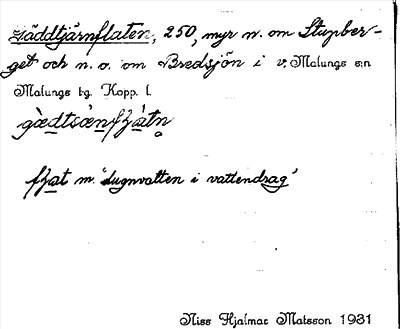 Gäddtjärnflaten, 250, myr n. om Stupber-
get och n. o. om Bredsjön i v. Malungs s:n
Malungs tg. Kopp. l.
flat m. "lugnvatten i vattendrag"
Niss Hjalmar Matsson 1931